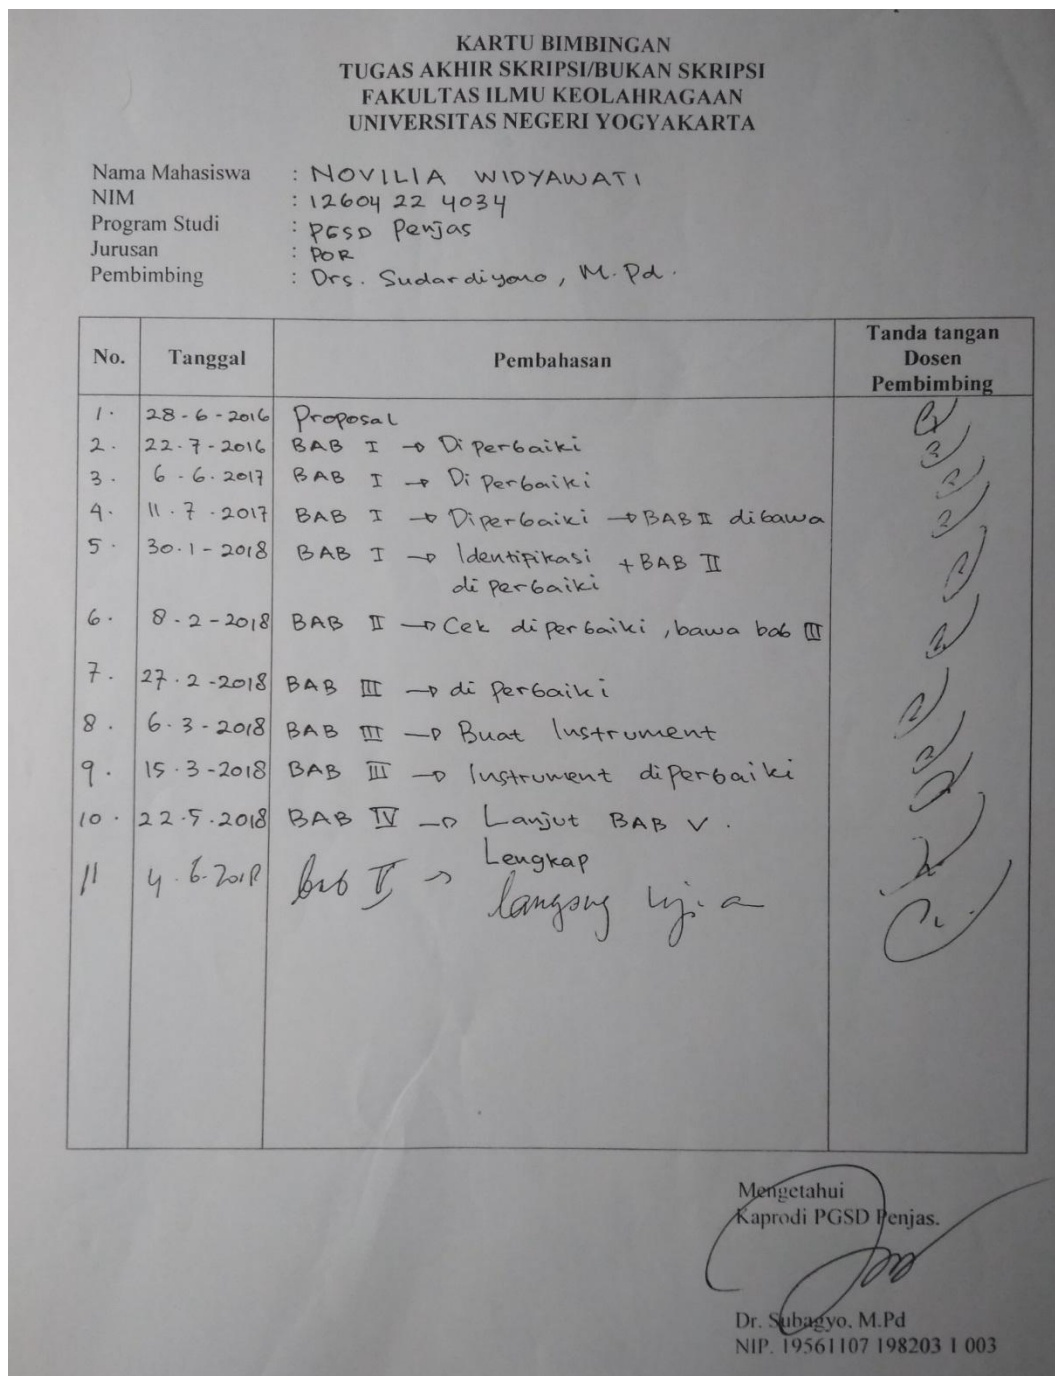 KARTU BIMBINGAN
TUGAS AKHIR SKRIPSI/BUKAN SKRIPSI
FAKULTAS ILMU KEOLAHRAGAAN
UNIVERSITAS NEGERI YOGYAKARTA
Nama Mahasiswa : NOVILIA WIDYAWATI
NIM : 12604 22 4034
Program Studi : PGSD Penjas
Jurusan : POR
Pembimbing : Drs. Sudardiyono, M.Pd.
No. Tanggal Pembahasan Tanda tangan Dosen Pembimbing
1. 28-6-2016 Proposal
2. 22.7-2016 BAB I → Diperbaiki
3. 6-6.2017 BAB I → Diperbaiki
4. 11.7.2017 BAB I → Diperbaiki → BAB II dibawa
5. 30.1-2018 BAB I → Identifikasi + BAB II
diperbaiki
6. 8-2-2018 BAB II → Cek diperbaiki, bawa bab III
7. 27.2-2018 BAB III → diperbaiki
8. 6.3-2018 BAB III → Buat Instrument
9. 15.3-2018 BAB III → Instrument diperbaiki
10. 22.5.2018 BAB IV → Lanjut BAB V.
Lengkap
11 4.6.2018 bab V → langsung
Mengetahui
Kaprodi PGSD Penjas.
Dr. Subagyo, M.Pd
NIP. 19561107 198203 1 003